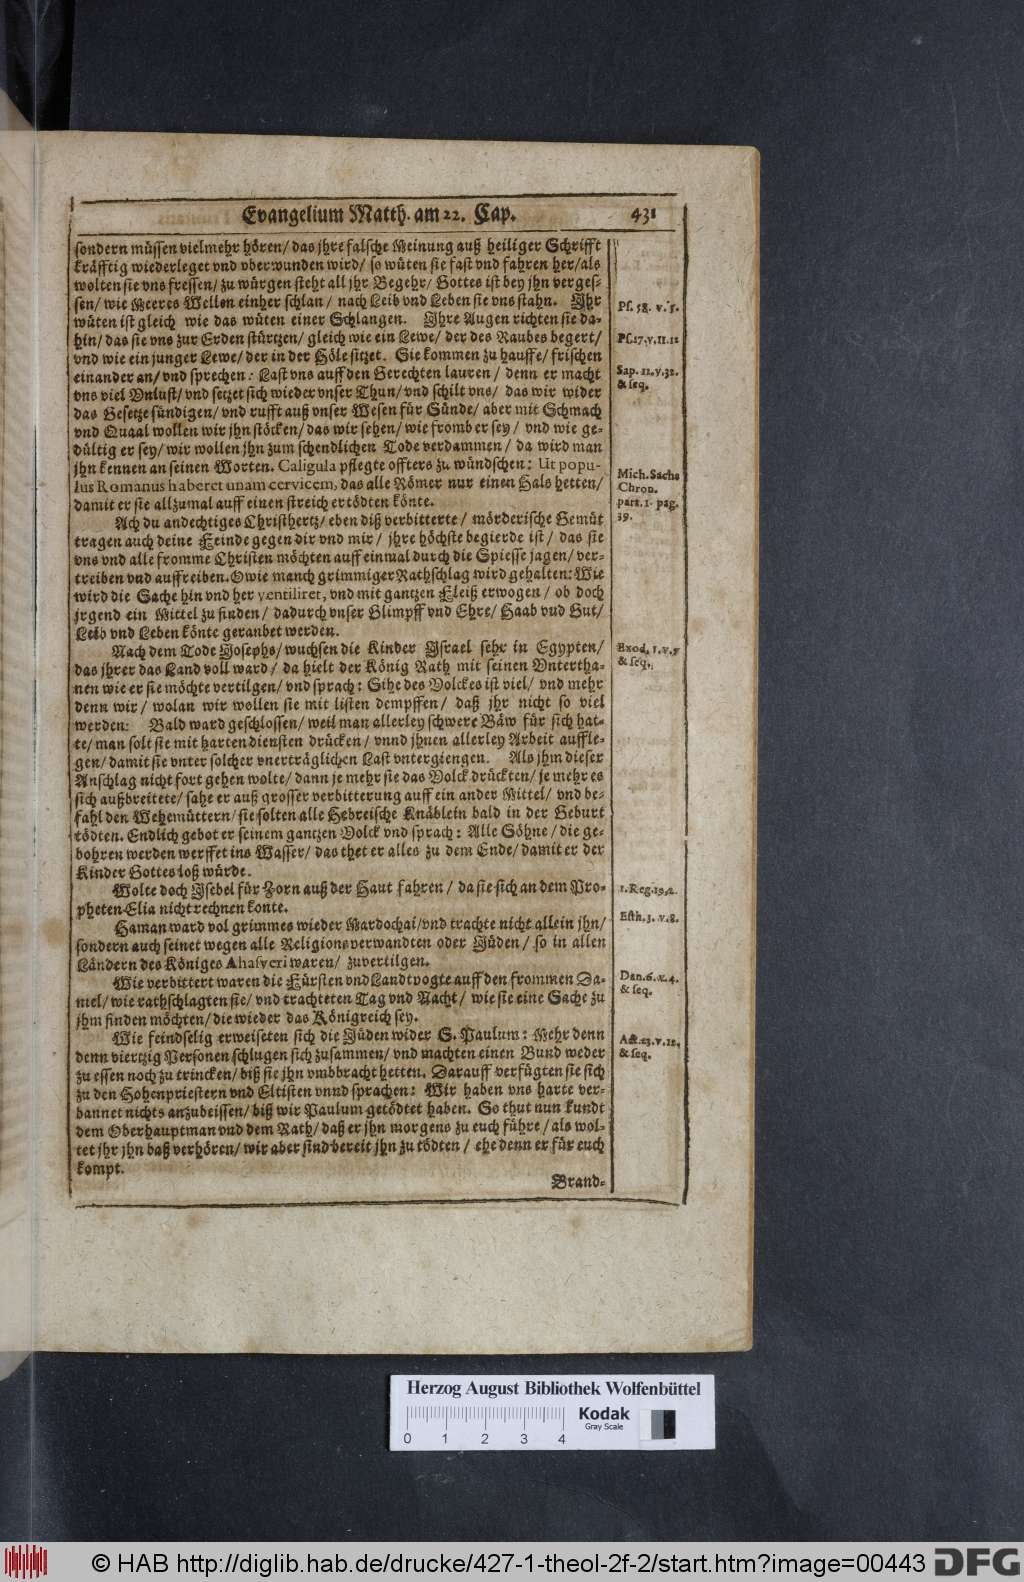 Evangelium Matth. am 22. Cap. 431
sondern müssen vielmehr hören/ das jhre falsche Meinung auß heiliger Schrifft
kräfftig wiederleget vnd vberwunden wird/ so wüten sie fast vnd fahren her/als
wolten sie vns fressen/ zu würgen steht all jhr Begehr/ Gottes ist bey jhn verges-
sen/ wie Meeres Wellen einher schlan/ nach Leib vnd Leben sie vns stahn. Ihr
wüten ist gleich wie das wüten einer Schlangen. Ihre Augen richten sie da-
hin/ das sie vns zur Erden stürtzen/ gleich wie ein Lewe/ der des Raubes begert/
vnd wie ein junger Lewe/ der in der Höle sitzet. Sie kommen zu hauffe/ frischen
einander an/ vnd sprechen: Last vns auff den Gerechten lauren/ denn er macht
vns viel Vnlust/ vnd setzet sich wieder vnser Thun/ vnd schilt vns/ das wir wider
das Gesetze sündigen/ vnd rufft auß vnser Wesen für Sünde/ aber mit Schmach
vnd Quaal wollen wir jhn stöcken/ das wir sehen/ wie fromb er sey/ vnd wie ge-
dültig er sey/ wir wollen jhn zum schendlichen Tode verdammen/ da wird man
jhn kennen an seinen Worten. Caligula pflegte offters zu wündschen: Ut popu-
lus Romanus haberet unam cervicem, das alle Römer nur einen Hals hetten/
damit er sie allzumal auff einen streich ertödten könte.
Ach du andechtiges Christhertz/ eben diß verbitterte/ mörderische Gemüt
tragen auch deine Feinde gegen dir vnd mir/ jhre höchste begierde ist/ das sie
vns vnd alle fromme Christen möchten auff einmal durch die Spiesse jagen/ ver-
treiben vnd auffreiben. O wie manch grimmiger Rathschlag wird gehalten: Wie
wird die Sache hin vnd her ventiliret, vnd mit gantzen Fleiß erwogen/ ob doch
jrgend ein Mittel zu finden/ dadurch vnser Glimpff vnd Ehre/ Haab vnd Gut/
Leib vnd Leben könte geraubet werden.
Nach dem Tode Josephs/ wuchsen die Kinder Israel sehr in Egypten/
das jhrer das Land voll ward/ da hielt der König Rath mit seinen Vntertha-
nen wie er sie möchte vertilgen/ vnd sprach: Sihe des Volckes ist viel/ vnd mehr
denn wir/ wolan wir wollen sie mit listen dempffen/ daß jhr nicht so viel
werden: Bald ward geschlossen/ weil man allerley schwere Bäw für sich hat-
te/ man solt sie mit harten diensten drücken/ vnnd jhnen allerley Arbeit auffle-
gen/ damit sie vnter solcher vnerträglichen Last vntergiengen. Als jhm dieser
Anschlag nicht fort gehen wolte/ dann je mehr sie das Volck drückten/ je mehr es
sich außbreitete/ sahe er auß grosser verbitterung auff ein ander Mittel/ vnd be-
fahl den Wehemüttern/ sie solten alle Hebreische Knäblein bald in der Geburt
tödten. Endlich gebot er seinem gantzen Volck vnd sprach: Alle Söhne/ die ge-
bohren werden werffet ins Wasser/ das thet er alles zu dem Ende/ damit er der
Kinder Gottes loß würde.
Wolte doch Isebel für Zorn auß der Haut fahren/ da sie sich an dem Pro-
pheten Elia nicht rechnen konte.
Haman ward vol grimmes wieder Mardochai/ vnd trachte nicht allein jhn/
sondern auch seinet wegen alle Religionsverwandten oder Jüden/ so in allen
Ländern des Königes Ahasveri waren/ zuvertilgen.
Wie verbittert waren die Fürsten vnd Landtvogte auff den frommen Da-
niel/ wie rathschlagten sie/ vnd trachteten Tag vnd Nacht/ wie sie eine Sache zu
jhm finden möchten/ die wieder das Königreich sey.
Wie feindselig erweiseten sich die Jüden wider S. Paulum: Mehr denn
denn viertzig Personen schlugen sich zusammen/ vnd machten einen Bund weder
zu essen noch zu trincken/ biß sie jhn vmbbracht hetten. Darauff verfügten sie sich
zu den Hohenpriestern vnd Eltisten vnnd sprachen: Wir haben vns harte ver-
bannet nichts anzubeissen/ biß wir Paulum getödtet haben. So thut nun kundt
dem Oberhauptman vnd dem Rath/ daß er jhn morgens zu euch führe/ als wol-
tet jhr jhn baß verhören/ wir aber sind bereit jhn zu tödten/ ehe denn er für euch
kompt.
Brand-
Ps. 58. v. 5.
Ps. 17. v. 11. 12
Sap. 11. v. 32.
& seq.
Mich. Sachs
Chron.
part. 1. pag.
39.
Exod. 1. v. 7
& seq.
1. Reg. 19, 2.
Esth. 3. v. 8.
Dan. 6. v. 4.
& seq.
Act. 23. v. 12.
& seq.
Herzog August Bibliothek Wolfenbüttel
Kodak
Gray Scale
0 1 2 3 4
© HAB http://diglib.hab.de/drucke/427-1-theol-2f-2/start.htm?image=00443 DFG